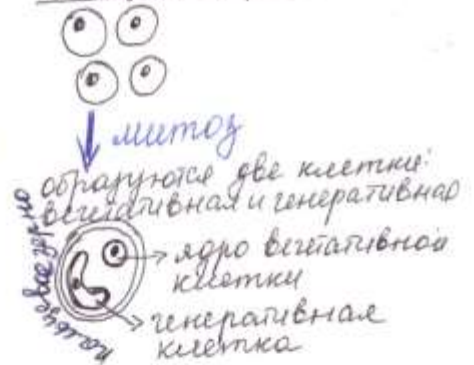 митоз
образуются две клетки:
вегетативная и генеративная
пыльцевое зерно
ядро вегетативной
клетки
генеративная
клетка